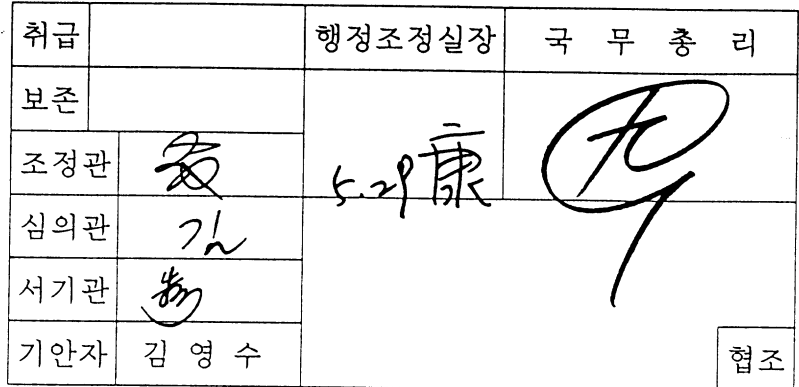 취급 행정조정실장 국 무 총 리
보존
조정관 5.29 康
심의관 김
서기관
기안자 김 영 수 협조